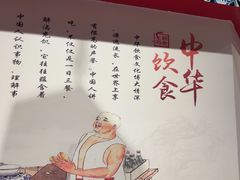 中华
饮食
中华饮食文化博大精深
源远流长，在世界上享
有很高的声誉。中国人讲
吃，不仅仅是一日三餐，
解渴充饥，它往往蕴含着
中国人认识事物、理解事